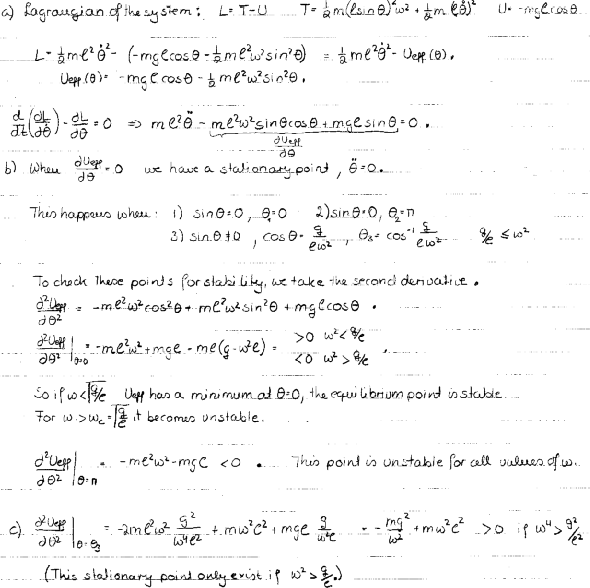 a) Lagrangian of the system: L = T-U   T = ½m(ℓsinθ)²ω² + ½m(ℓθ̇)²   U = -mgℓcosθ
L = ½mℓ²θ̇² - (-mgℓcosθ - ½mℓ²ω²sin²θ) = ½mℓ²θ̇² - Ueff(θ),
Ueff(θ) = -mgℓcosθ - ½mℓ²ω²sin²θ.
d/dt(∂L/∂θ̇) - ∂L/∂θ = 0 ⇒ mℓ²θ̈ - mℓ²ω²sinθcosθ + mgℓsinθ = 0.
∂Ueff/∂θ
b) When ∂Ueff/∂θ = 0 we have a stationary point, θ̈ = 0.
This happens when: 1) sinθ=0, θ₁=0   2) sinθ=0, θ₂=π
3) sinθ≠0, cosθ = g/ℓω², θ₃ = cos⁻¹ g/ℓω²   g/ℓ ≤ ω²
To check these points for stability, we take the second derivative.
∂²Ueff/∂θ² = -mℓ²ω²cos²θ + mℓ²ω²sin²θ + mgℓcosθ.
∂²Ueff/∂θ²|θ=0 = -mℓ²ω² + mgℓ = mℓ(g-ω²ℓ) = >0 ω²<g/ℓ
<0 ω²>g/ℓ,
So if ω<√g/ℓ Ueff has a minimum at θ=0, the equilibrium point is stable.
For ω>ωc=√g/ℓ it becomes unstable.
∂²Ueff/∂θ²|θ=π = -mℓ²ω² - mgℓ < 0. This point is unstable for all values of ω.
c) ∂²Ueff/∂θ²|θ=θ₃ = -2mℓ²ω² g²/ω⁴ℓ² + mω²ℓ² + mgℓ g/ω²ℓ = - mg²/ω² + mω²ℓ² > 0 if ω⁴ > g²/ℓ²
(This stationary point only exist if ω² > g/ℓ.)